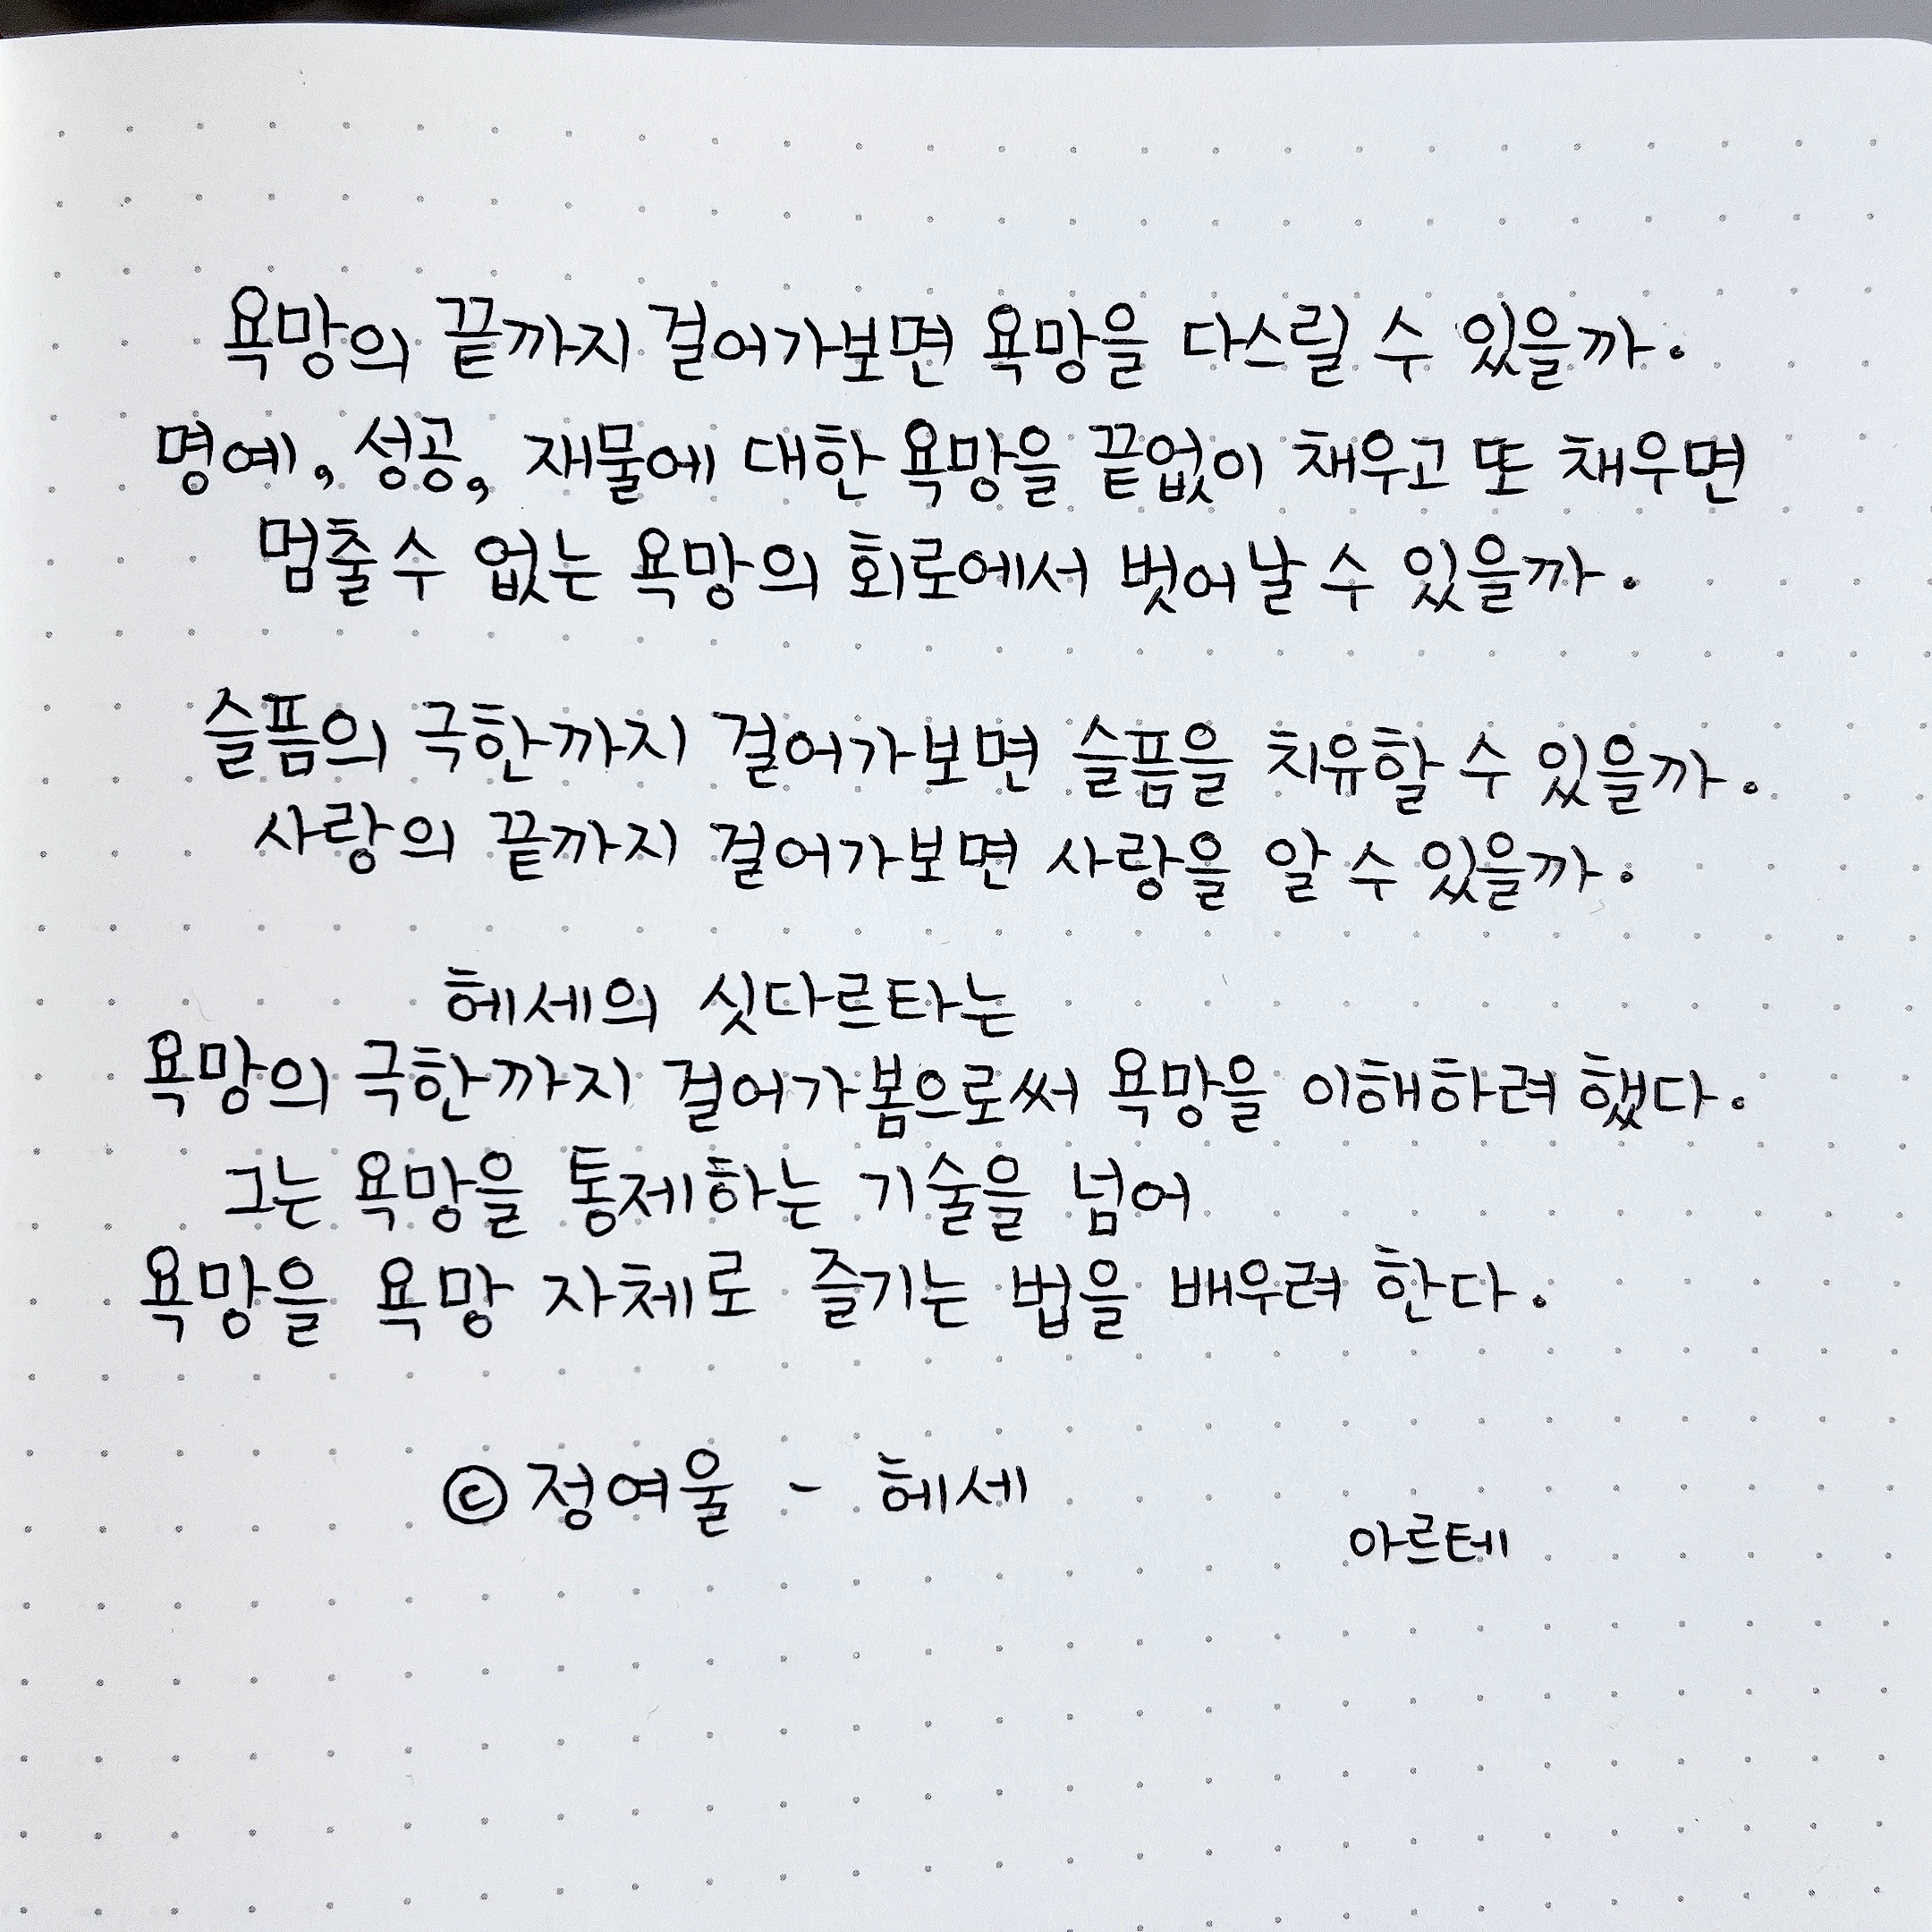 욕망의 끝까지 걸어가보면 욕망을 다스릴 수 있을까.
명예, 성공, 재물에 대한 욕망을 끝없이 채우고 또 채우면
멈출 수 없는 욕망의 회로에서 벗어날 수 있을까.
슬픔의 극한까지 걸어가보면 슬픔을 치유할 수 있을까.
사랑의 끝까지 걸어가보면 사랑을 알 수 있을까.
헤세의 싯다르타는
욕망의 극한까지 걸어가봄으로써 욕망을 이해하려 했다.
그는 욕망을 통제하는 기술을 넘어
욕망을 욕망 자체로 즐기는 법을 배우려 한다.
© 정여울 - 헤세
아르테